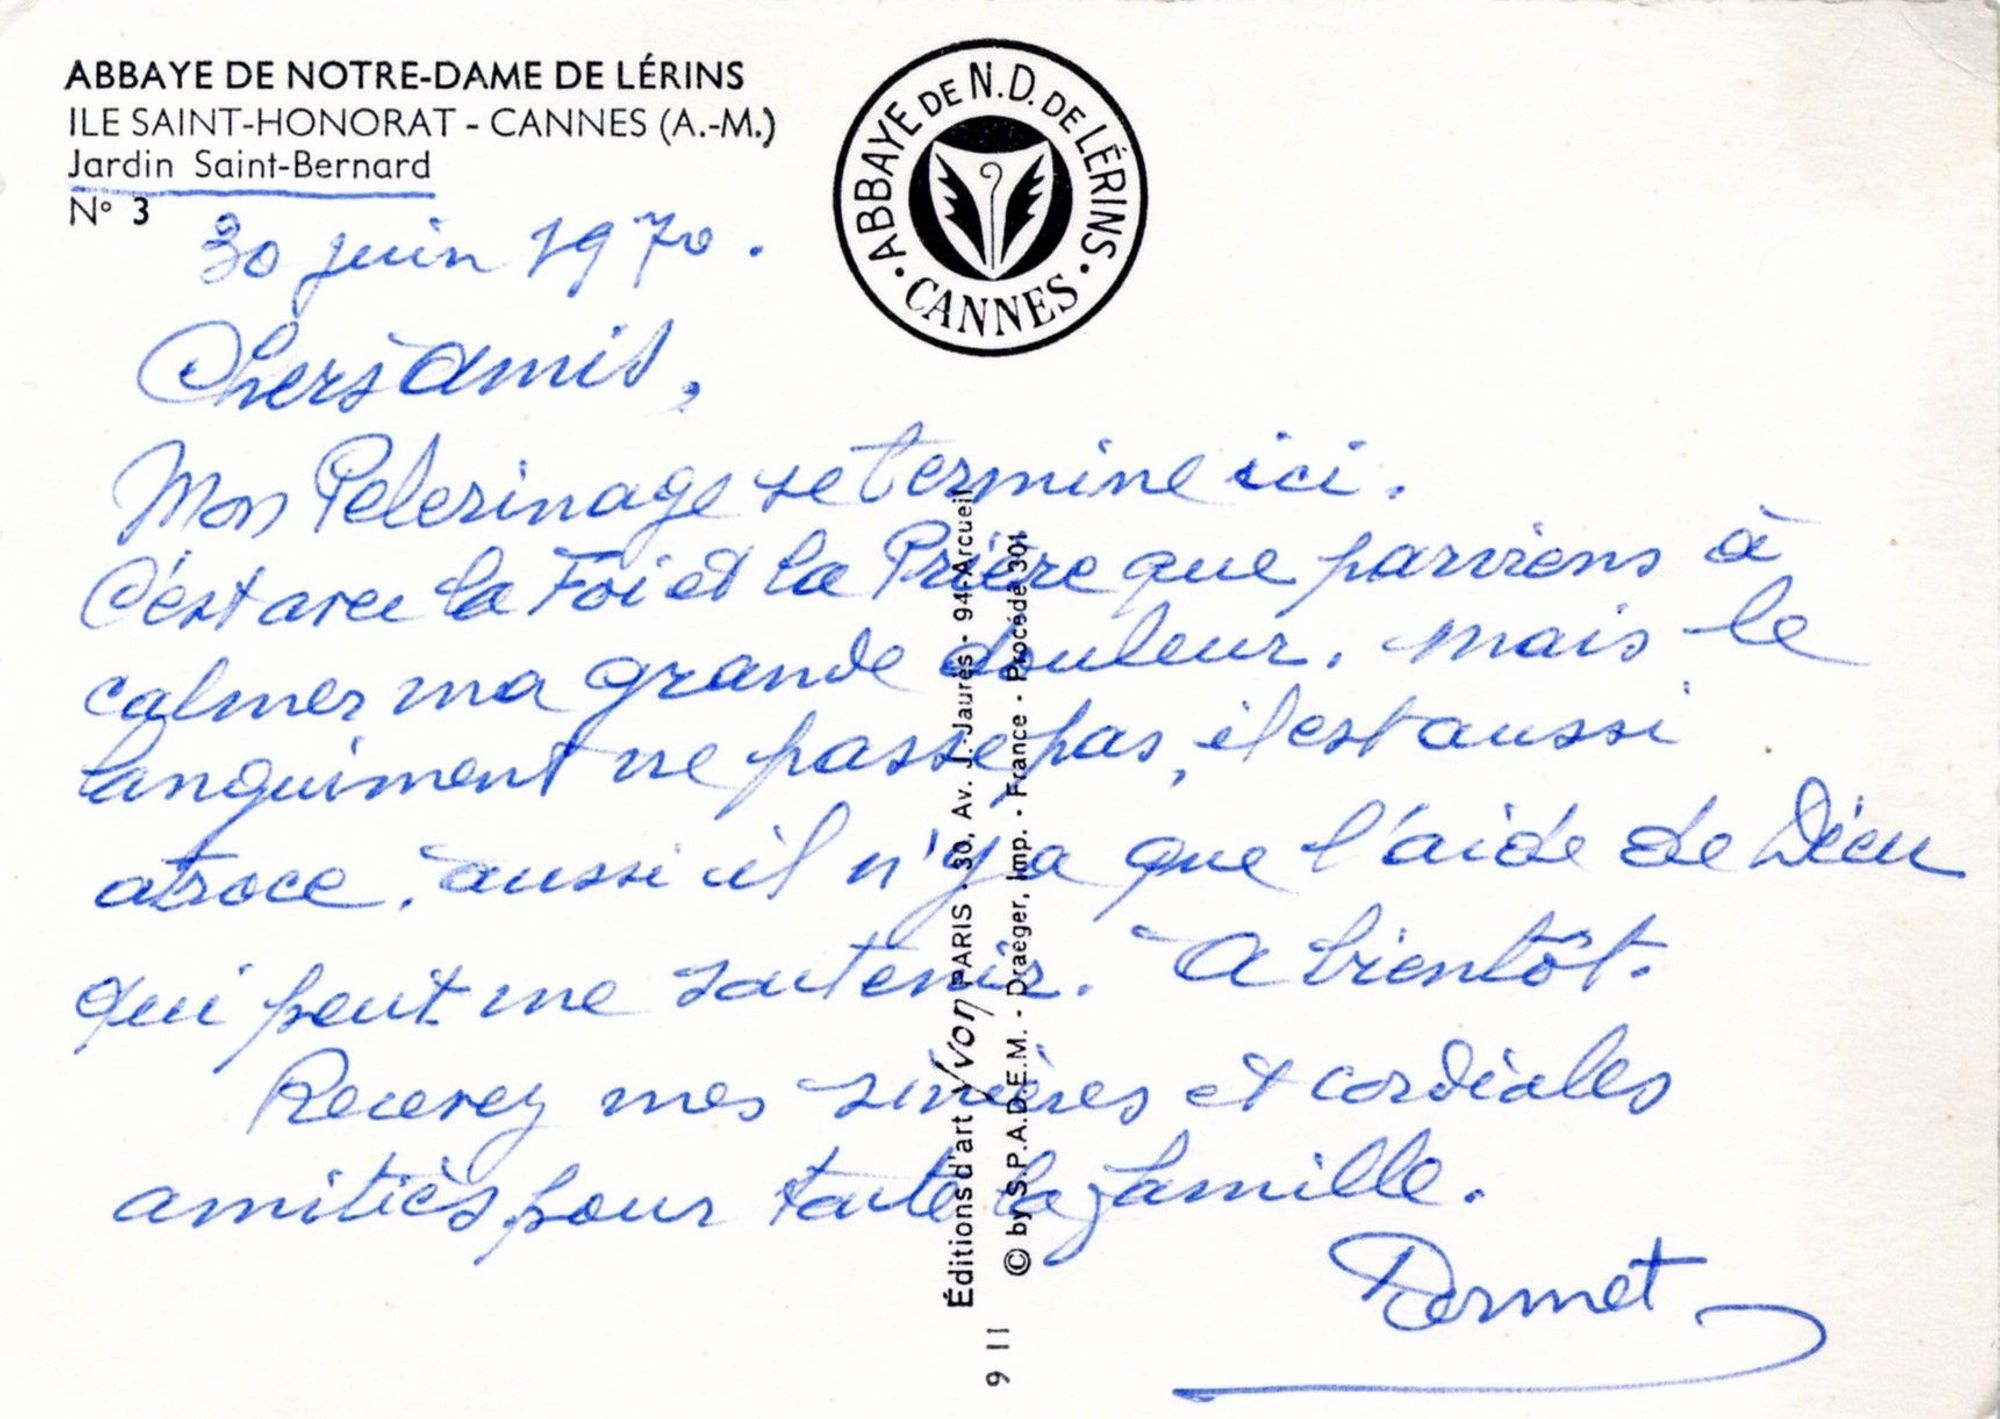 ABBAYE DE NOTRE-DAME DE LÉRINS
ILE SAINT-HONORAT - CANNES (A.-M.)
Jardin Saint-Bernard
N° 3
• ABBAYE DE N.D. DE LÉRINS •
CANNES
30 juin 1970.
Chers amis,
Mon Pelerinage se termine ici.
C'est avec la Foi et la Prière que parviens à
calmer ma grande douleur. mais le
languiment ne passe pas, il est aussi
atroce. aussi il n'y a que l'aide de Dieu
qui peut me soutenir. A bientôt.
Recevez mes sincères et cordiales
amitiès pour toute la famille.
Dormet
Éditions d'art Yvon PARIS - 30, Av. J.-Jaurès - 94-Arcueil
© by S.P.A.D.E.M. - Draeger, Imp. - France - Procédé 301
9 11